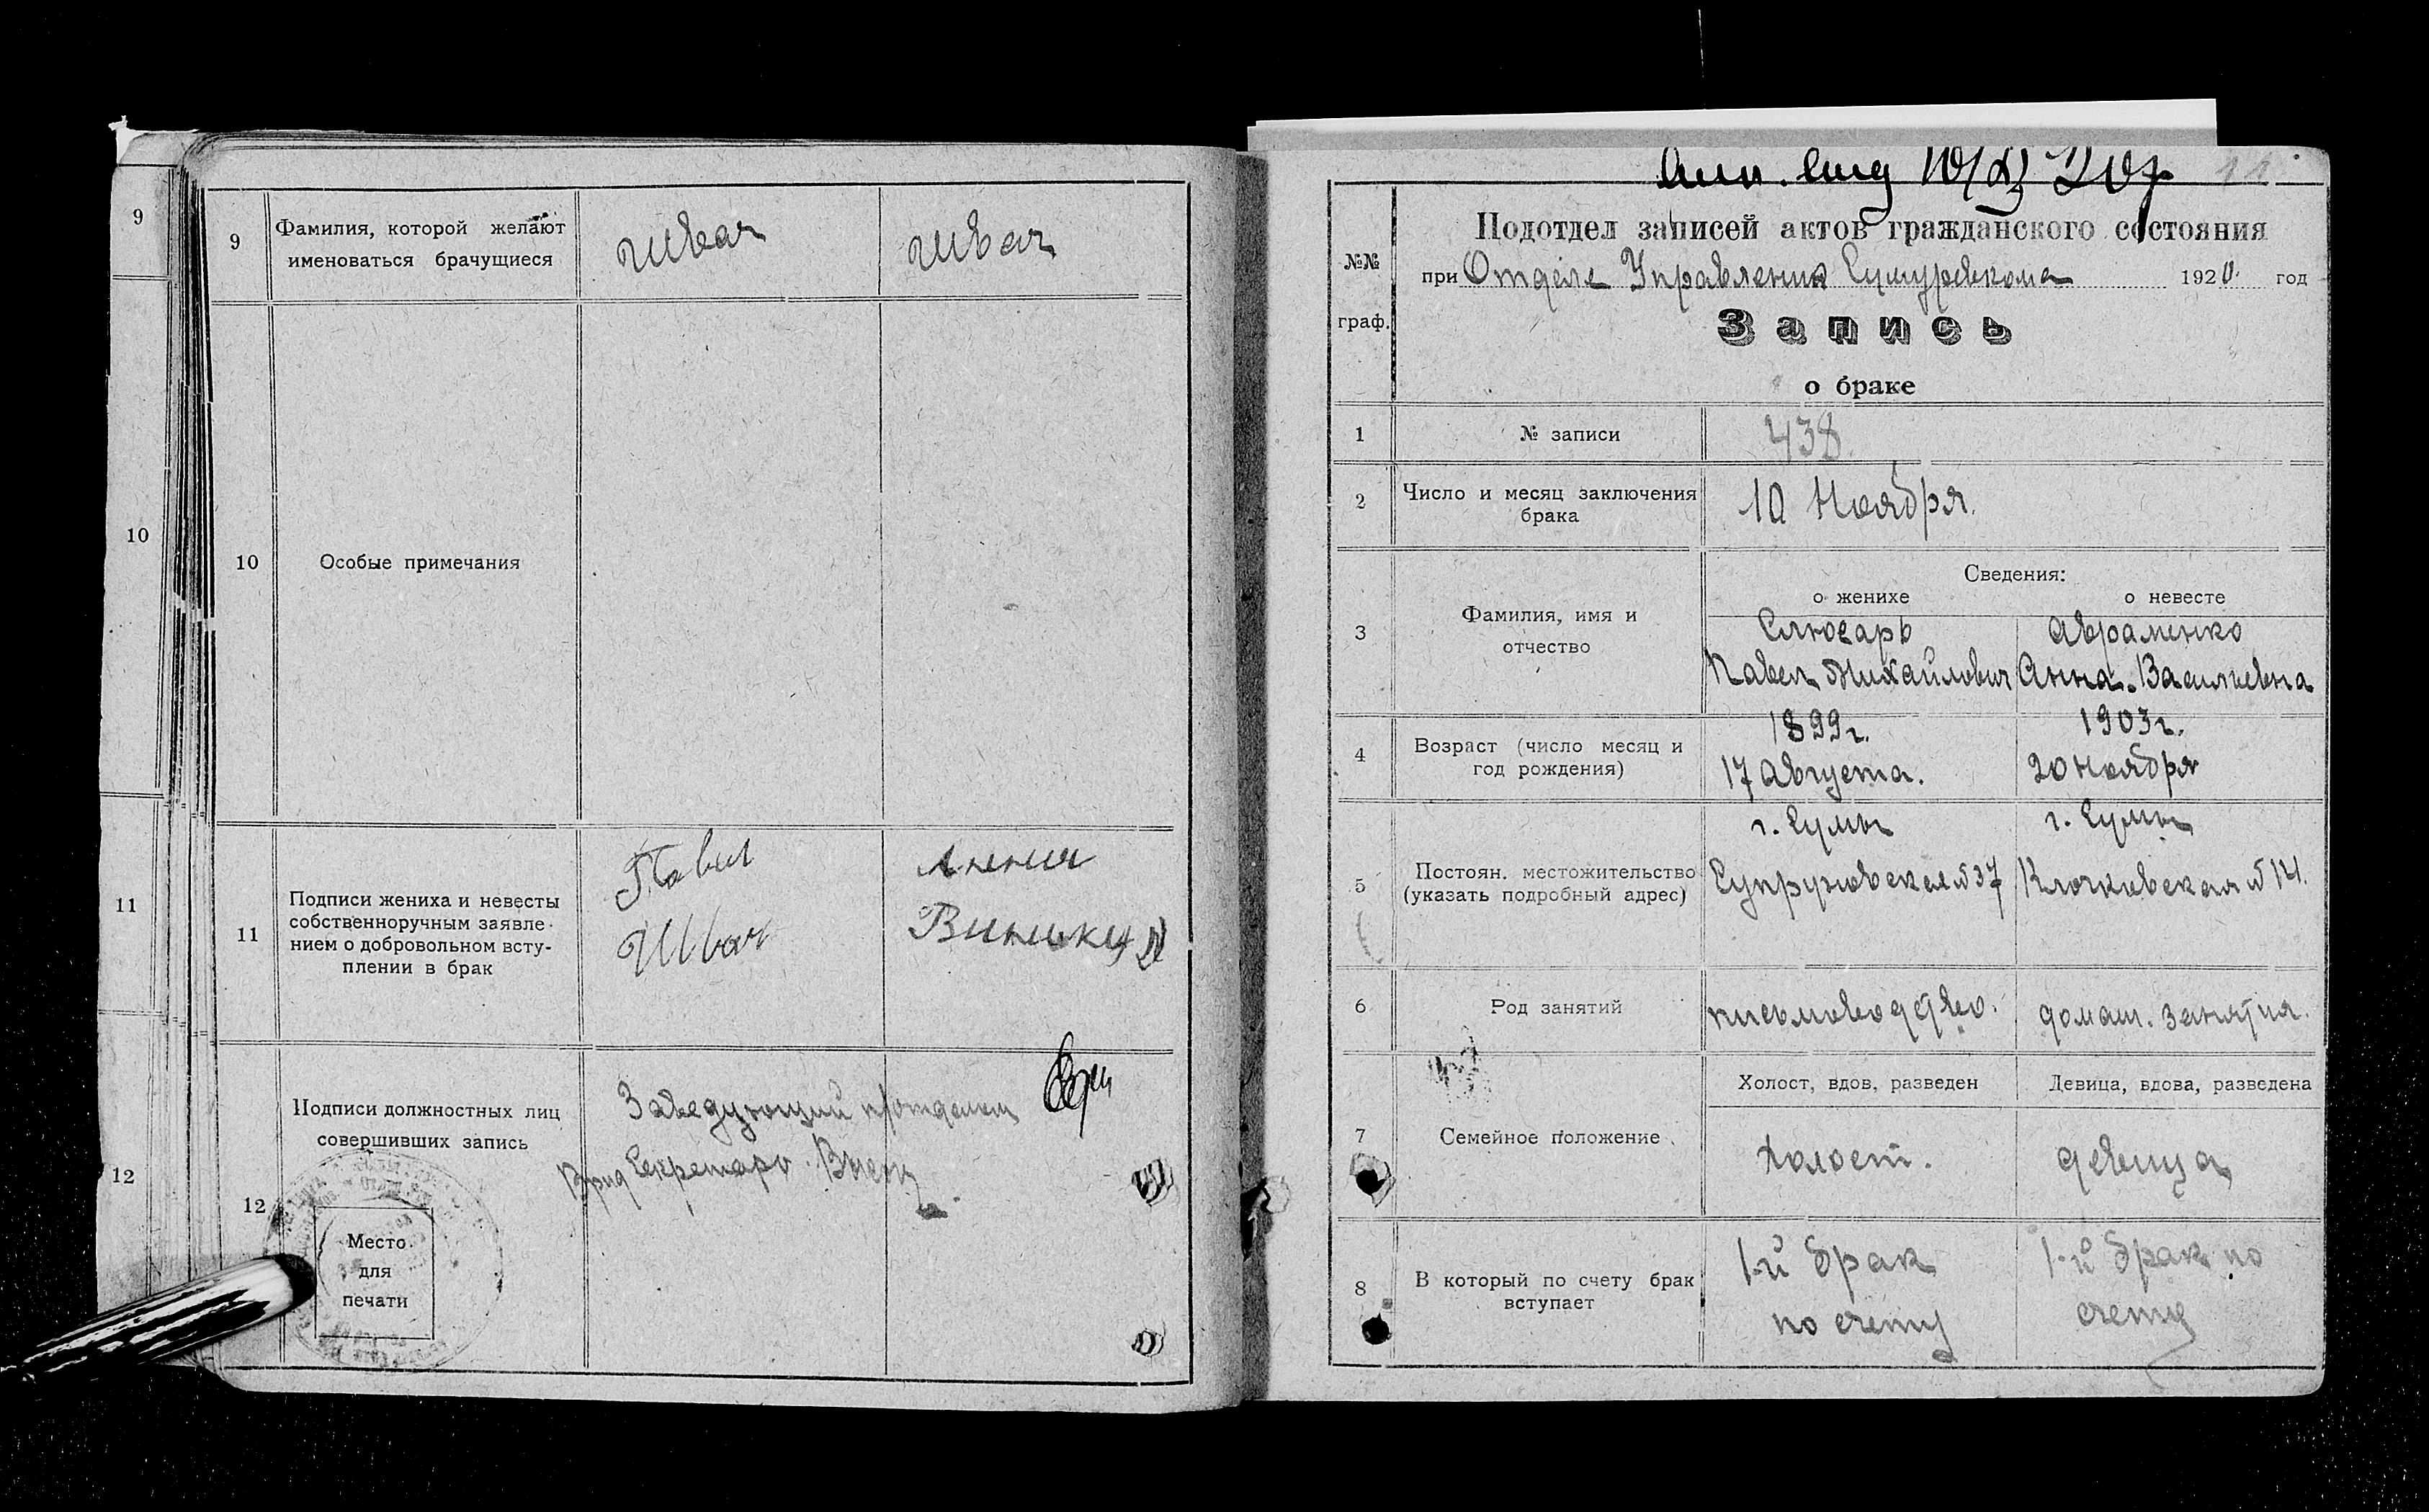 9
10
11
12
9
Фамилия, которой желают
именоваться брачущиеся
Швач
Швач
10
Особые примечания
11
Подписи жениха и невесты
собственноручным заявле-
нием о добровольном всту-
плении в брак
Павел
Швач
12
Подписи должностных лиц
совершивших запись
Заведующий п/отделом
Врид Секретаря
Место
для
печати
11
№№
граф.
Подотдел записей актов гражданского состояния
при Отделе Управления Сумуревкома 1920 год
Запись
о браке
1
№ записи
438
2
Число и месяц заключения
брака
10 Ноября.
3
Фамилия, имя и
отчество
Сведения:
о женихе
о невесте
Слюсарь
Павел Михайлович
Авраменко
Анна Васильевна
4
Возраст (число месяц и
год рождения)
1899г.
17 Августа.
1903г.
20 Ноября
5
Постоян. местожительство
(указать подробный адрес)
г. Сумы
Супруновская №37
г. Сумы
Клочковская № 14.
6
Род занятий
письмоводство.
домаш. занятия.
7
Семейное положение
Холост, вдов, разведен
Девица, вдова, разведена
Холост.
девица
8
В который по счету брак
вступает
1-й брак
по счету
1-й брак по
счету